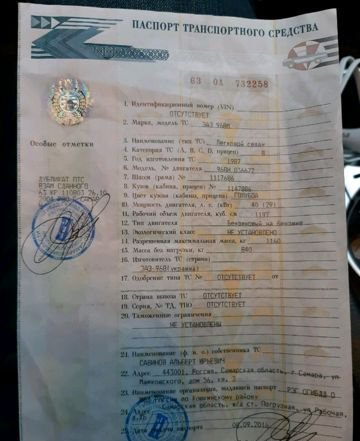 ПАСПОРТ ТРАНСПОРТНОГО СРЕДСТВА
63 ОА 732258
1. Идентификационный номер (VIN)
ОТСУТСТВУЕТ
2. Марка, модель ТС ЗАЗ 968М
3. Наименование (тип ТС) Легковой седан
4. Категория ТС (А, В, С, D, прицеп) В
5. Год изготовления ТС 1987
6. Модель, № двигателя
7. Шасси (рама) № 1117686
8. Кузов (кабина, прицеп) №
9. Цвет кузова (кабины, прицепа) ГОЛУБОЙ
10. Мощность двигателя, л. с. (кВт) 40 (29)
11. Рабочий объем двигателя, куб. см 1197
12. Тип двигателя Бензиновый на бензине
13. Экологический класс НЕ УСТАНОВЛЕНО
14. Разрешенная максимальная масса, кг 1160
15. Масса без нагрузки, кг 840
16. Изготовитель ТС (страна)
ЗАЗ-968(украина)
17. Одобрение типа ТС № ОТСУТСТВУЕТ от
18. Страна вывоза ТС ОТСУТСТВУЕТ
19. Серия, № ТД, ТПО ОТСУТСТВУЕТ
20. Таможенные ограничения
НЕ УСТАНОВЛЕНЫ
21. Наименование (ф. и. о.) собственника ТС
САВИНОВ АЛЬБЕРТ ЮРЬЕВИЧ
22. Адрес 443001, Россия, Самарская область, г Самара, ул
Маяковского, дом
23. Наименование организации, выдавшей паспорт РЭГ ОГИБДД О
району
24. Адрес Самарская область, ж/д ст. Погрузная, ул Рабочая,
паспорта
Особые отметки
ДУБЛИКАТ ПТС
ВЗАМ СДАННОГО
63 КР 110803